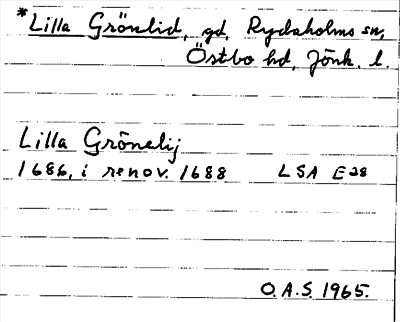 *Lilla Grönlid, gd, Rydaholms sn,
Östbo hd, Jönk. l.
Lilla Grönelij
1686, i renov. 1688 LSA E28
O.A.S. 1965.